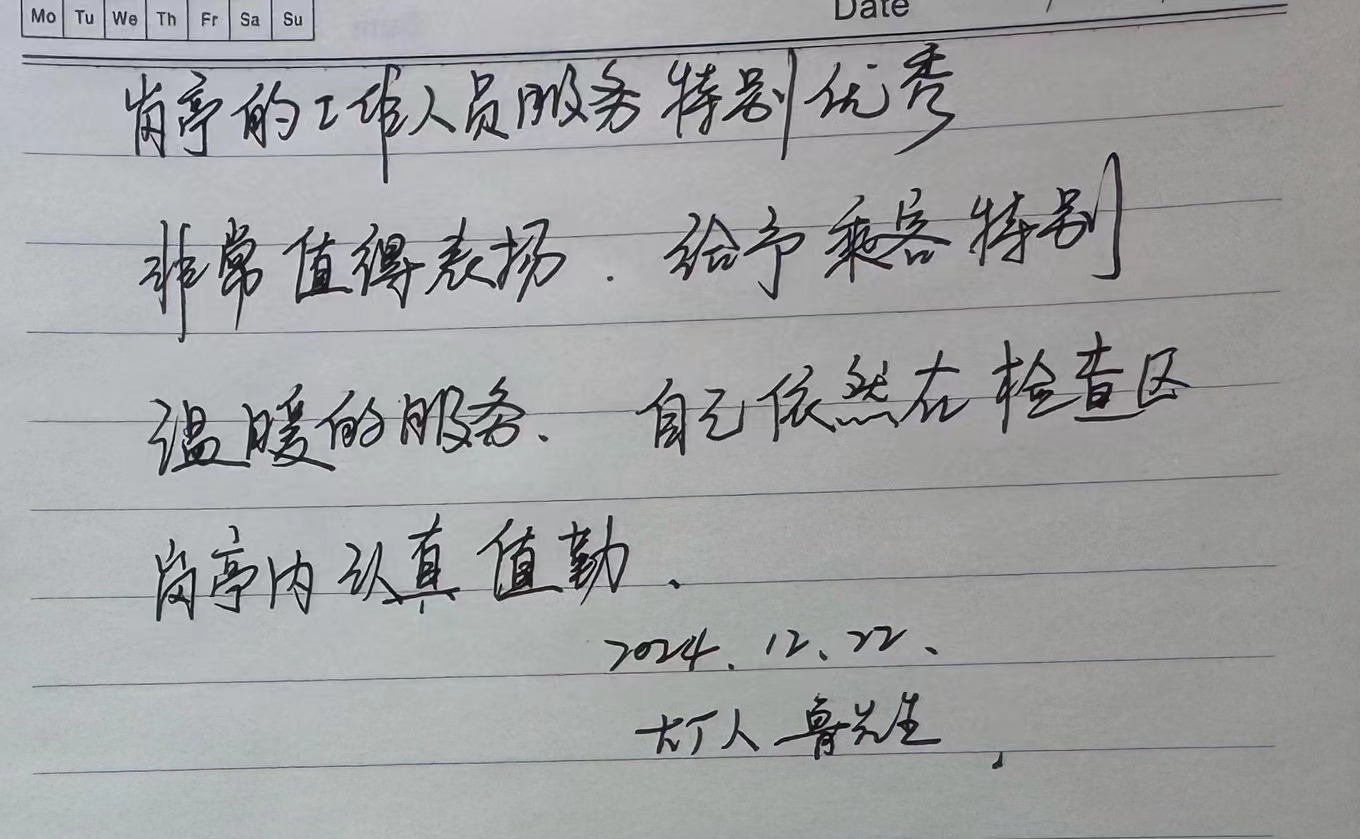 Mo Tu We Th Fr Sa Su
Date / /
岗亭的工作人员服务特别优秀
非常值得表扬.给予乘客特别
温暖的服务、自己依然在检查区
岗亭内认真值勤、
2024.12、22、
人鲁先生